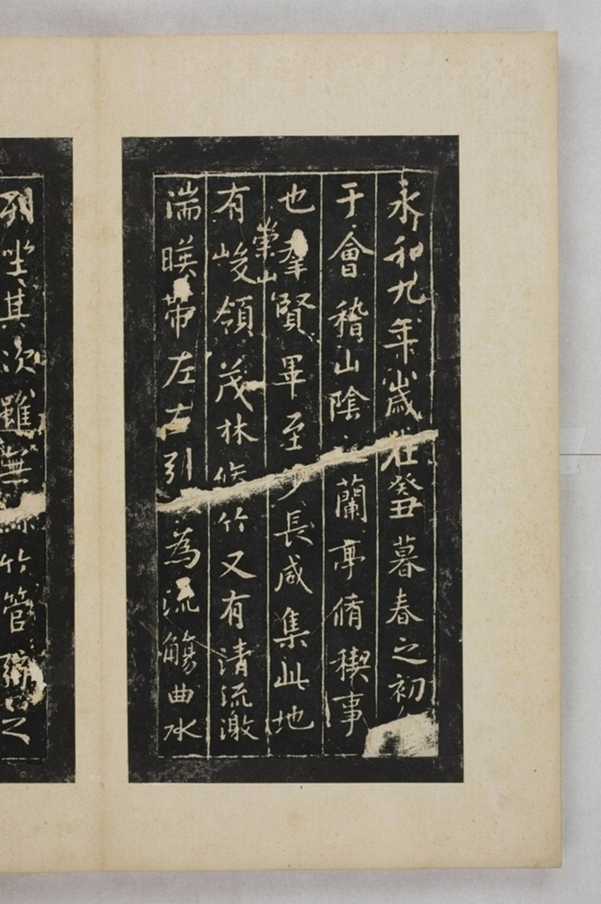 永和九年歲在癸丑暮春之初
于會稽山陰之蘭亭脩稧事
也羣賢畢至少長咸集此地
有崇山峻領茂林脩竹又有清流激
湍暎帶左右引為流觴曲水
列坐其次雖無竹管弦之